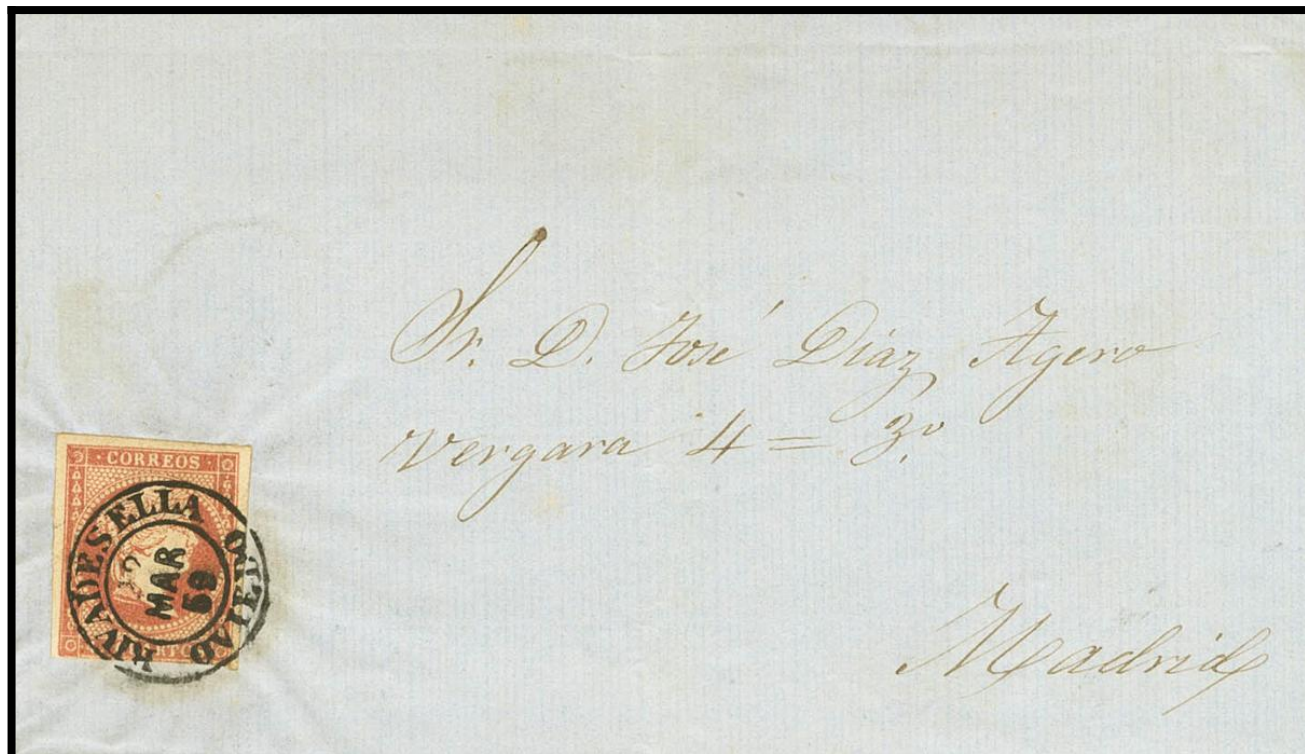 Sr. D. José Diaz Agero
Vergara 4 = 3º.
Madrid
CORREOS
RIVADESELLA
OVIEDO
MAR
59